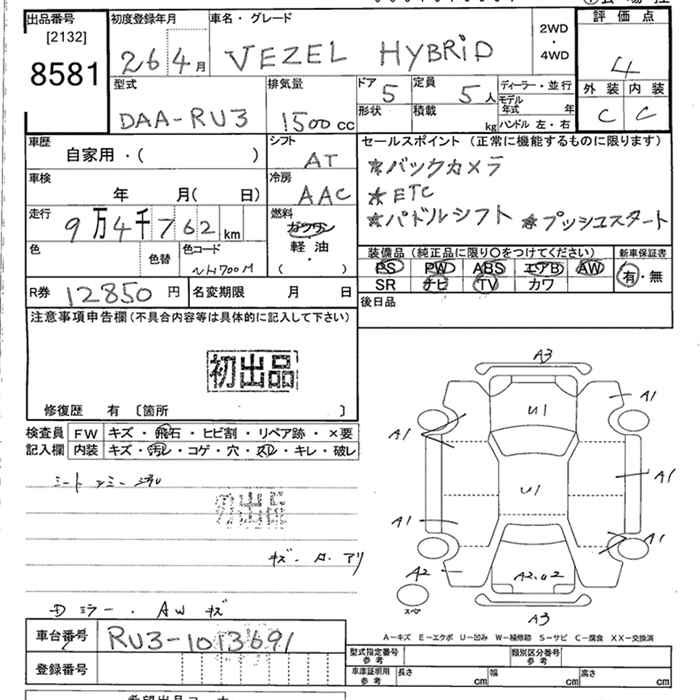 出品番号
[2132]
8581
初度登録年月
26 4月
車名・グレード
VEZEL HYBRID
2WD
・
4WD
評価点
4
外装 内装
C C
型式
DAA-RU3
排気量
1500cc
ドア 5
形状
定員 5人
積載 kg
ディーラー・並行
モデル年式 年
ハンドル 左・右
車歴
自家用・( )
シフト
AT
車検
年 月( 日)
冷房
AAC
走行
9万4千762km
燃料
ガソリン
軽・油
( )
色
色替
色コード
NH700M
セールスポイント(正常に機能するものに限ります)
★バックカメラ
★ETC
★パドルシフト ★プッシュスタート
装備品(純正品に限り〇をつけてください)
PS PW ABS エアB AW
SR ナビ TV カワ
新車保証書
有・無
R券 12850円
名変期限 月 日
後日品
注意事項申告欄(不具合内容等は具体的に記入して下さい)
初出品
修復歴 有〔箇所 〕
検査員記入欄
FW キズ・飛石・ヒビ割・リペア跡・×要
内装 キズ・汚レ・コゲ・穴・スレ・キレ・破レ
初出品
キズ・A・アリ
Dミラー・AWキズ
A3
U1
A1
A1
U1
A1
A1
A1
A2
A2.U2
スペア
A3
A-キズ E-エクボ U-凹み W-補修跡 S-サビ C-腐食 XX-交換済
車台番号
RU3-1013691
登録番号
型式指定番号
参考
類別区分番号
参考
車庫証明用
参考
長さ cm
幅 cm
高さ cm